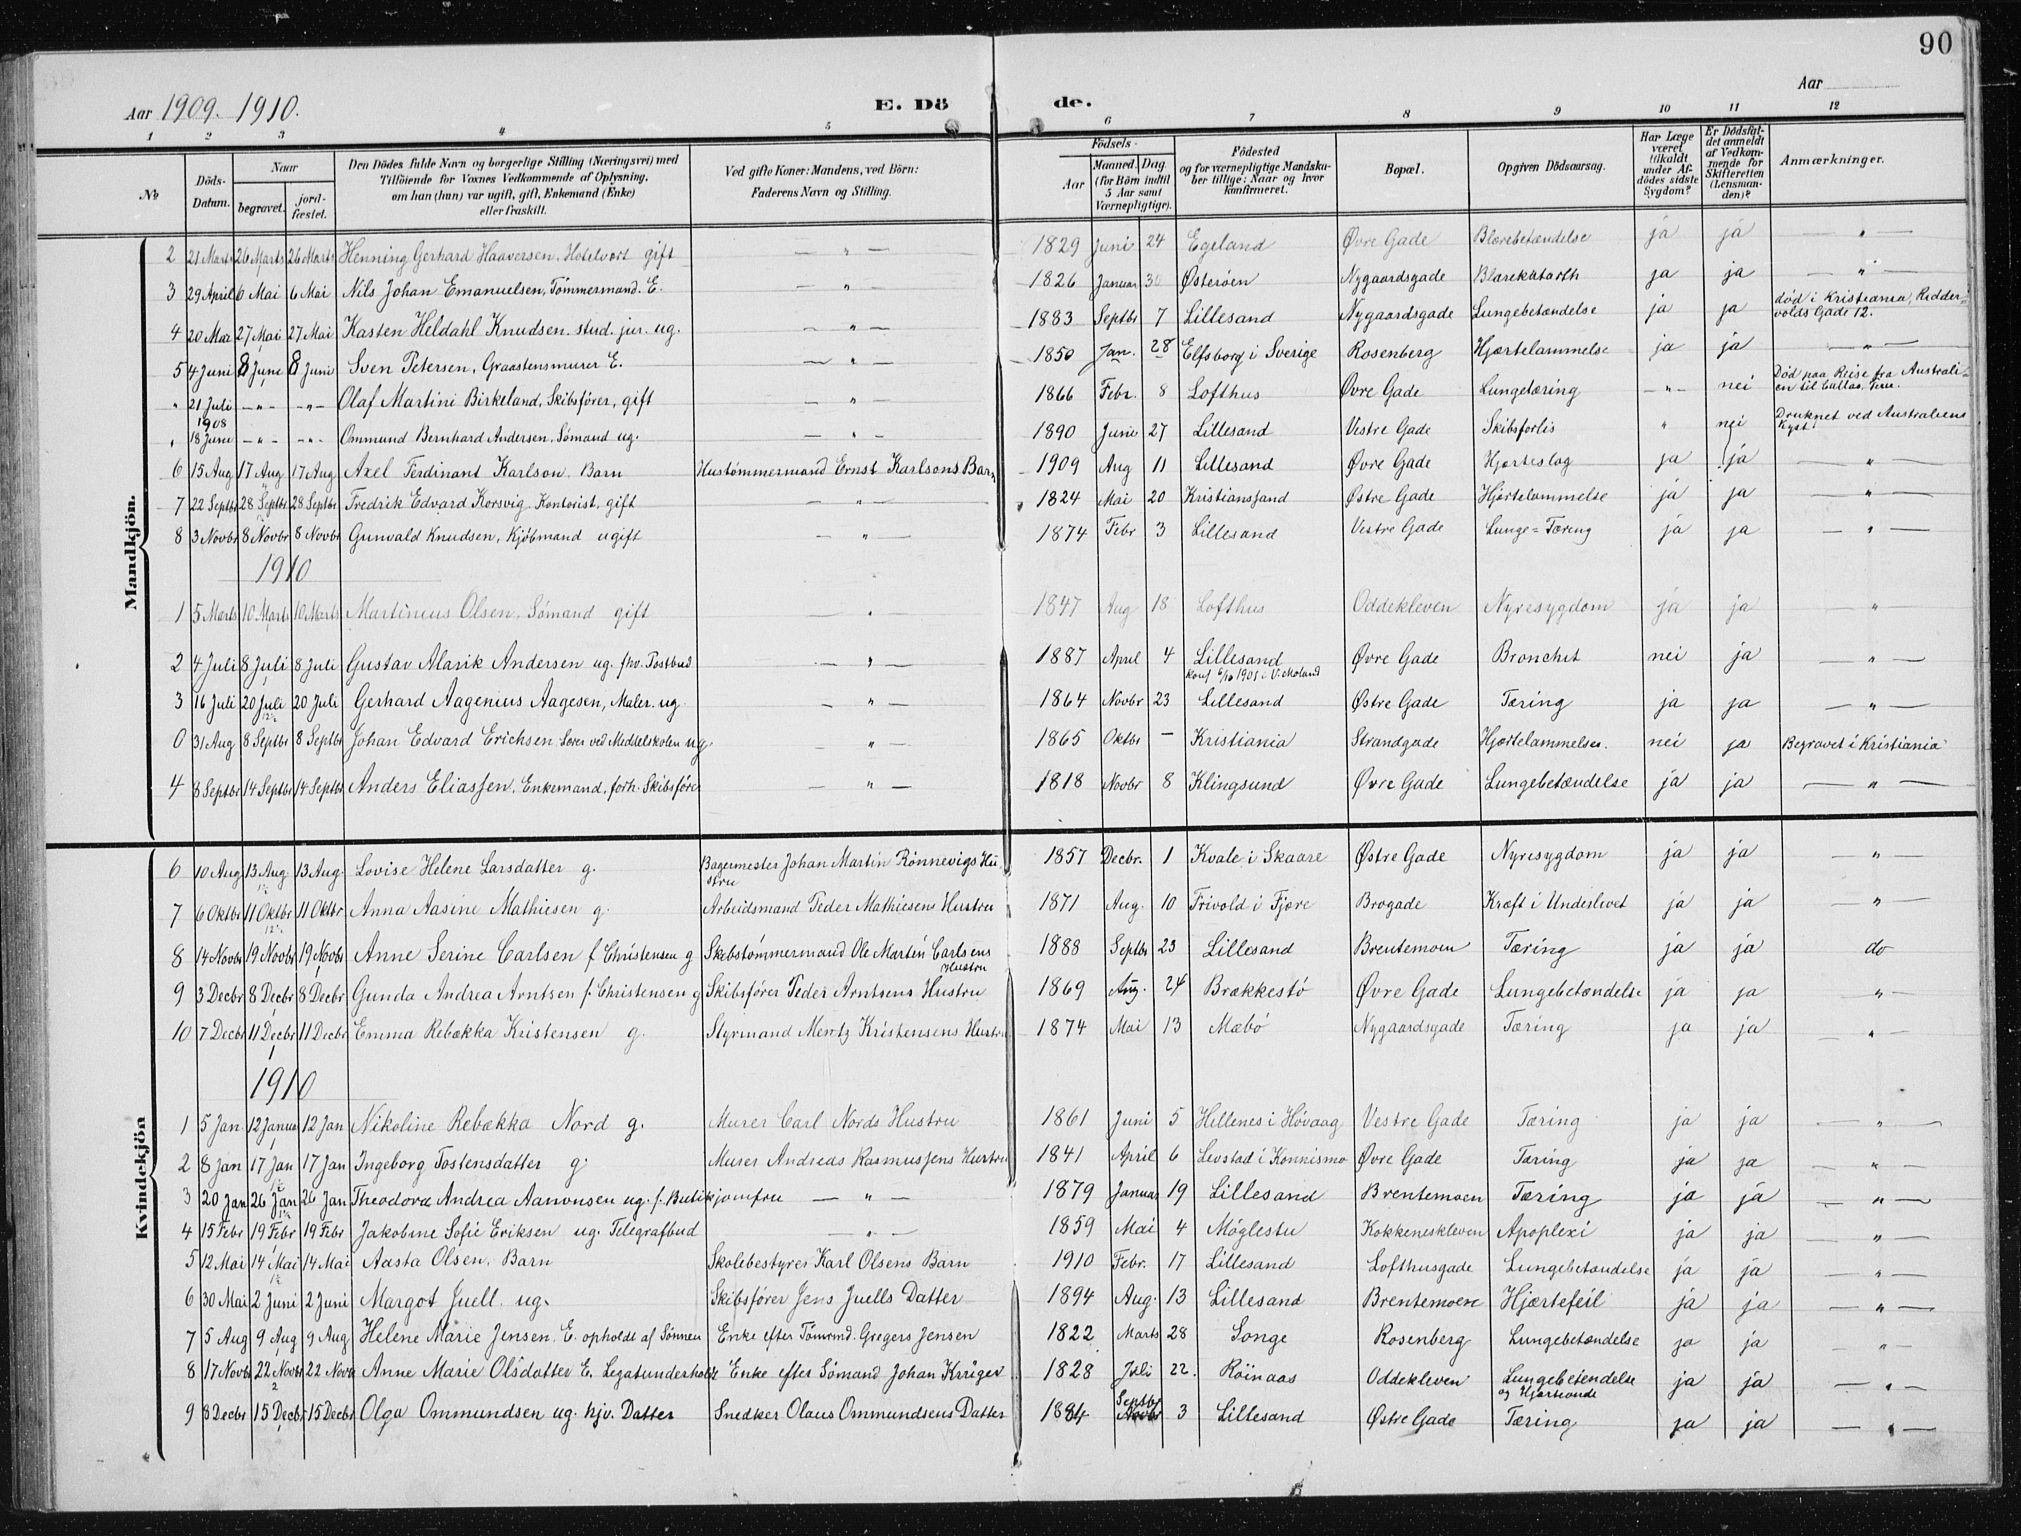 90
Aar 1909. 1910.
E. Dö de.
Aar
1 2 3 4 5 6 7 8 9 10 11 12
No
Döds-Datum.
Naar
begravet.
jord-fæstet.
Den Dödes fulde Navn og borgerlige Stilling (Næringsvei) med
Tilföiende for Voxnes Vedkommende af Oplysning,
om han (hun) var ugift, gift, Enkemand (Enke)
eller fraskilt.
Ved gifte Koner: Mandens, ved Börn:
Faderens Navn og Stilling.
Födsels-
Aar
Maaned. Dag.
(for Börn indtil
5 Aar samt
Værnepligtige).
Födested
og for værnepligtige Mandska-
ber tillige: Naar og hvor
konfirmeret.
Bopæl.
Opgiven Dödsaarsag.
Har Læge
været
tilkaldt
under Af-
dödes sidste
Sygdom?
Er Dödsfal-
det anmeldt
af Vedkom-
mende for
Skifteretten
(Lensman-
den)?
Anmærkninger.
Mandkjön.
2 21 Marts 26 Marts 26 Marts Henning Gerhard Haaversen, Hotelvært gift — " — 1829 Juni 24 Egeland Øvre Gade Blærebetændelse ja ja — " —
3 29 April 6 Mai 6 Mai Nils Johan Emanuelsen, Tømmermand. E. — " — 1826 Januar 30 Østerøen Nygaardsgade Blærekatarrh ja ja — " —
4 20 Mai 27 Mai 27 Mai Kasten Heldahl Knudsen. stud. jur. ug. — " — 1883 Septbr 7 Lillesand Nygaardsgade Lungebetændelse ja ja død i Kristiania, Ridder-
volds Gade 12.
5 4 Juni 8 June 8 Juni Sven Petersen, Graastensmurer E. — " — 1850 Jan. 28 Elfsborg i Sverige Rosenberg Hjærtelammelse ja ja — " —
" 21 Juli — " — — " — Olaf Martini Birkeland, Skibsfører, gift — " — 1866 Febr. 8 Lofthus Øvre Gade Lungetæring — " — nei Død paa Reise fra Australi-
en til Callao, Peru.
1908
" 18 Juni — " — — " — Ommund Bernhard Andersen, Sømand ug. — " — 1890 Juni 27 Lillesand Vestre Gade Skibsforlis " nei Druknet ved Australiens
Kyst.
6 15 Aug 17 Aug 17 Aug Axel Ferdinant Karlson. Barn Hustømmermand Ernst Karlsons Barn 1909 Aug 11 Lillesand Øvre Gade Hjerteslag ja ja — " —
7 22 Septbr 28 Septbr 28 Septbr Fredrik Edvard Korsvig, Kontorist, gift — " — 1824 Mai 20 Kristianssand Østre Gade Hjertelammelse ja ja — " —
8 3 Novbr 8 Novbr 8 Novbr Gunvald Knudsen, Kjøbmand ugift — " — 1874 Febr 3 Lillesand Vestre Gade Lunge=Tæring ja ja — " —
1910
1 5 Marts 10 Marts 10 Marts Martinius Olsen, Sømand gift " 1847 Aug 18 Lofthus Oddekleven Nyresygdom ja ja "
2 4 Juli 8 Juli 8 Juli Gustav Alarik Andersen ug. fhv. Postbud — " — 1887 April 4 Lillesand Øvre Gade Bronchit nei ja — " —
Konf 6/10 1901 i V. Moland
3 16 Juli 20 Juli 20 Juli Gerhard Aagenius Aagesen, Maler. ug. — " — 1864 Novbr 23 Lillesand Østre Gade Tæring ja ja — " —
0 31 Aug 8 Septbr 8 Septbr Johan Edvard Erichsen Lærer ved Middelskolen ug — " — 1865 Oktbr — Kristiania Strandgade Hjærtelammelse. nei ja Begravet i Kristiania
4 8 Septbr 14 Septbr 14 Septbr Anders Eliassen, Enkemand, forh. Skibsfører — " — 1818 Novbr 8 Klingsund Øvre Gade Lungebetændelse ja ja — " —
Kvindekjön
6 10 Aug 13 Aug 13 Aug. Lovise Helene Larsdatter g. Bagermester Johan Martin Rønnevigs Hu-
stru 1857 Decbr. 1 Kvale i Skaare Østre Gade Nyresygdom ja ja — " —
7 6 Oktbr 11 Oktbr 11 Oktbr Anna Aasine Mathiesen g. Arbeidsmand Peder Mathiesens Hustru 1871 Aug. 10 Frivold i Fjære Brogade Kræft i Underlivet ja ja — " —
8 14 Novbr 19 Novbr 19 Novbr Anne Serine Carlsen f. Christensen g Skibstømmermand Ole Martin Carlsens
Hustru 1888 Septbr 23 Lillesand Brentemoen Tæring ja ja do
9 3 Decbr 8 Decbr 8 Decbr Gunda Andrea Arntsen f. Christensen g Skibsfører Peder Arntsens Hustru 1869 Aug. 24 Brækkestø Øvre Gade Lungebetændelse ja ja — " —
10 7 Decbr 11 Decbr 11 Decbr Emma Rebækka Kristensen g. Styrmand Mentz Kristensens Hustru 1874 Mai 13 Mæbø Nygaardsgade Tæring ja ja — " —
1910
1 5 Jan 12 Januar 12 Jan Nikoline Rebækka Nord g. Murer Carl Nords Hustru 1861 Juni 5 Hellenes i Høvaag Vestre Gade Tæring ja ja — " —
2 8 Jan 17 Jan 17 Jan Ingeborg Tostensdatter g. Murer Andreas Rasmussens Hustru 1841 April 6 Levstad i Konnismo Øvre Gade Tæring ja ja — " —
3 20 Jan 26 Jan 26 Jan Theodora Andrea Aanonsen ug. f. Butikjomfru — " — 1879 Januar 19 Lillesand Brentemoen Tæring ja ja — " —
4 15 Febr 19 Febr 19 Febr Jakobine Sofie Eriksen ug. Telegrafbud — " — 1859 Mai 4 Møglestu Kokkeneskleven Apoplexi ja ja — " —
5 12 Mai 14 Mai 14 Mai Aasta Olsen, Barn Skolebestyrer Karl Olsens Barn 1910 Febr. 17 Lillesand Lofthusgade Lungebetændelse ja ja — " —
6 30 Mai 2 Juni 2 Juni Margot Juell. ug. Skibsfører Jens Juells Datter 1894 Aug. 13 Lillesand Brentemoen Hjærtefeil ja ja — " —
7 5 Aug 9 Aug 9 Aug Helene Marie Jensen. E. opholdt af Sønnen Enke efter Tømrmd. Gregers Jensen 1822 Marts 28 Songe Rosenberg Lungebetændelse ja ja — " —
8 17 Novbr 22 Novbr 22 Novbr Anne Marie Olsdatter E. Legatunderholdt Enke efter Sømand Johan Krüger 1828 Juli 22. Röinaas Oddekleven Lungebetændelse
og Hjærteonde ja ja — " —
9 8 Decbr 15 Decbr 15 Decbr Olga Ommundsen ug. hjv. Datter Snedker Olaus Ommundsens Datter 1884 Septbr Novbr 3 Lillesand Østre Gade Tæring ja ja — " —